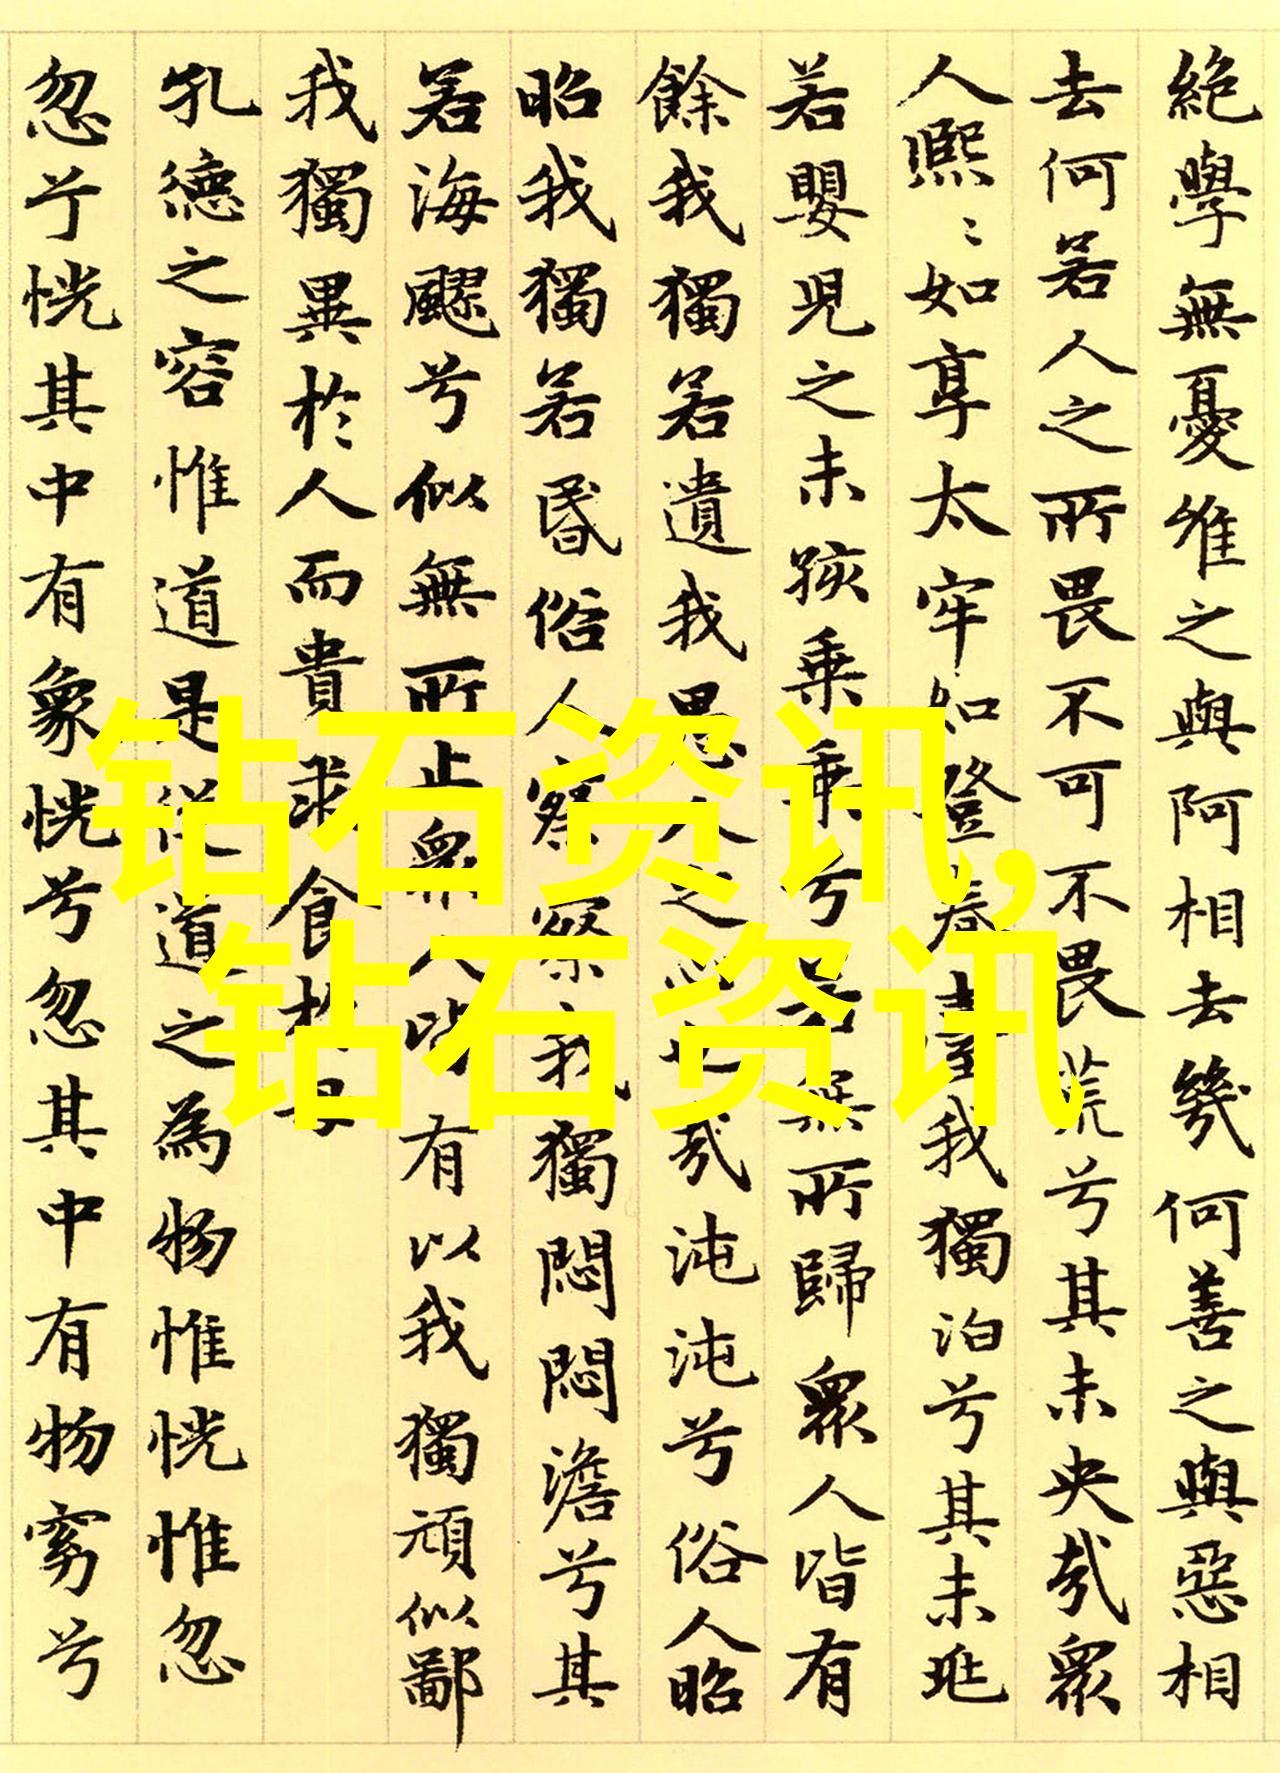 絶學無憂唯之與阿相去幾何善之與惡相
去何若人之所畏不可不畏荒兮其未央哉衆
人熙〻如享太牢如登春臺我獨泊兮其未兆
若嬰兒之未孩乗乗兮若無所歸衆人皆有
餘我獨若遺我愚人之心也哉沌沌兮俗人昭
昭我獨若昏俗人察察我獨悶悶澹兮其
若海飂兮似無所止衆人皆有以我獨頑似鄙
我獨異於人而貴求食於母
孔德之容惟道是從道之為物惟恍惟忽
忽兮恍其中有象恍兮忽其中有物窈兮
钻石资讯,
钻石资讯